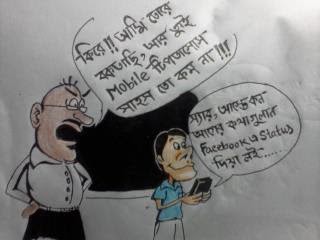 কিরে!! আমি তোরে
বকতাছি, আর তুই
Mobile টিপতাছোস
সাহস তো কম না!!!
স্যার, আস্তে কন
আগের কথাগুলান
Facebook এ Status
দিয়া লই.....